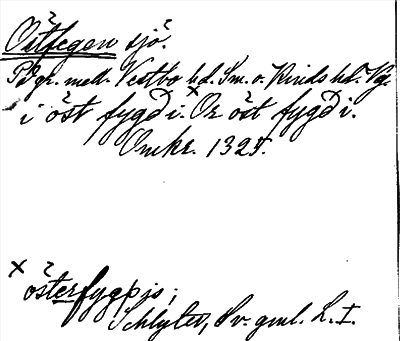 Östfegen sjö.
På gr. med. Vestbo hd. Sm. o. Kinds hd. Vg.
i öst fygð i. × Or öst fygð i.
Omkr. 1325.
× österfygþis;
Schlyter, Sv. gml. L. I.